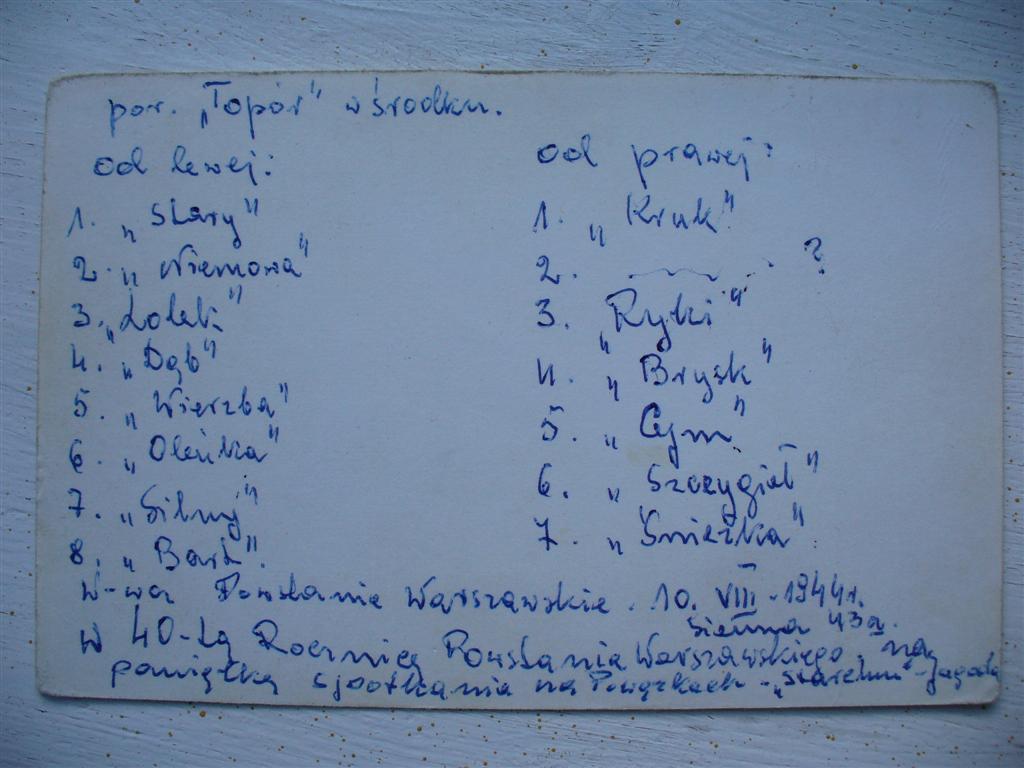 por. „Topór" w środku.
od lewej:
1. „Stary"
2. „Niemowa"
3. „Lolek"
4. „Dąb"
5. „Wierzba"
6. „Oleńka"
7. „Silny"
8. „Bart".
od prawej:
1. „Kruk"
2. ?
3. „Rytki"
4. „Brysk"
5. „Cym"
6. „Szczygieł"
7. „Śnieżka"
W-wa Powstanie Warszawskie. 10. VIII - 1944 r.
Sienna 43 a.
w 40-tą Rocznicę Powstania Warszawskiego na
pamiątkę spotkania na Powązkach - Jagoda